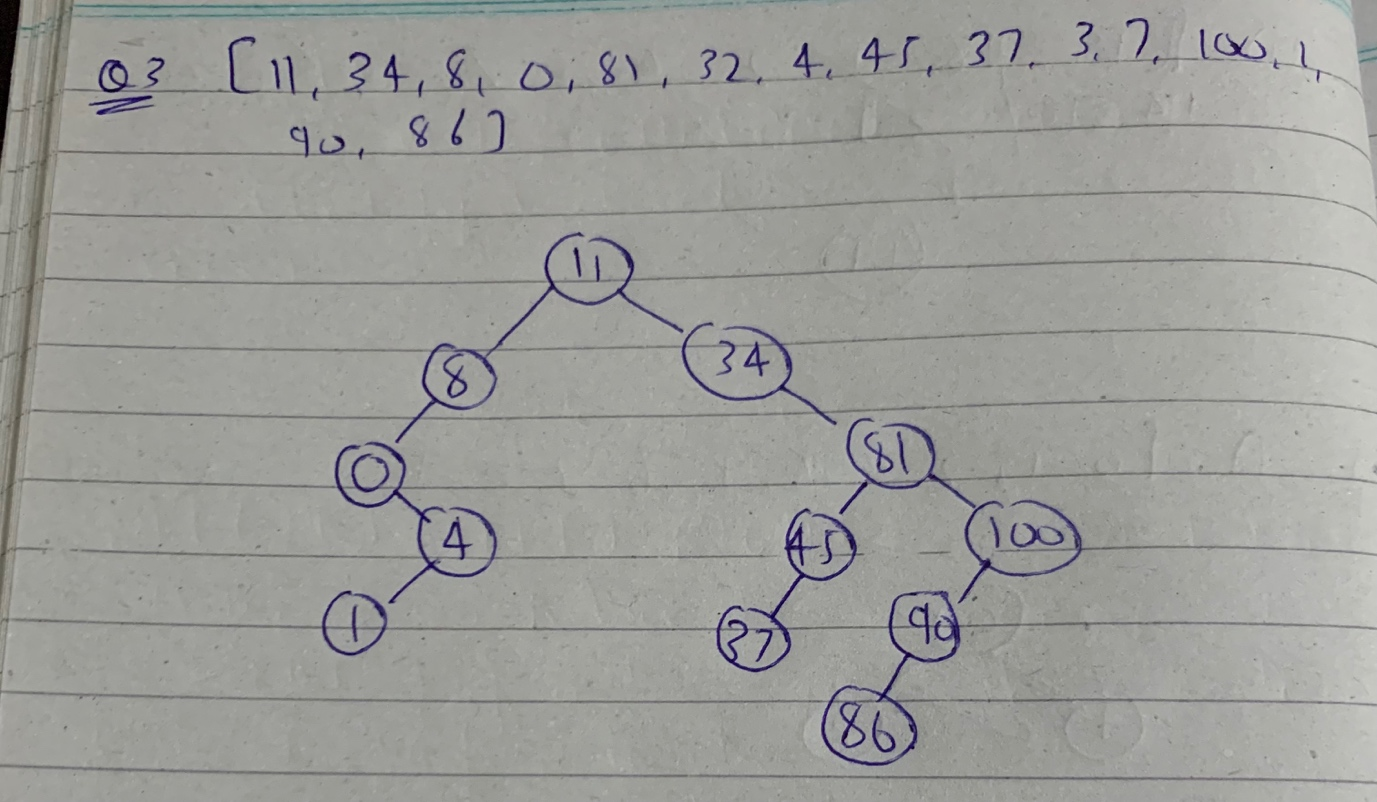 Q3 [11, 34, 8, 0, 81, 32, 4, 45, 37, 3, 7, 100, 1,
90, 86]
11
8 34
0 81
4 45 100
1 37 90
86